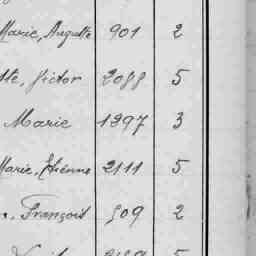 Marie, Auguste 901 2
Victor 2088 5
Marie 1297 3
Marie, Etienne 2111 5
François 509 2